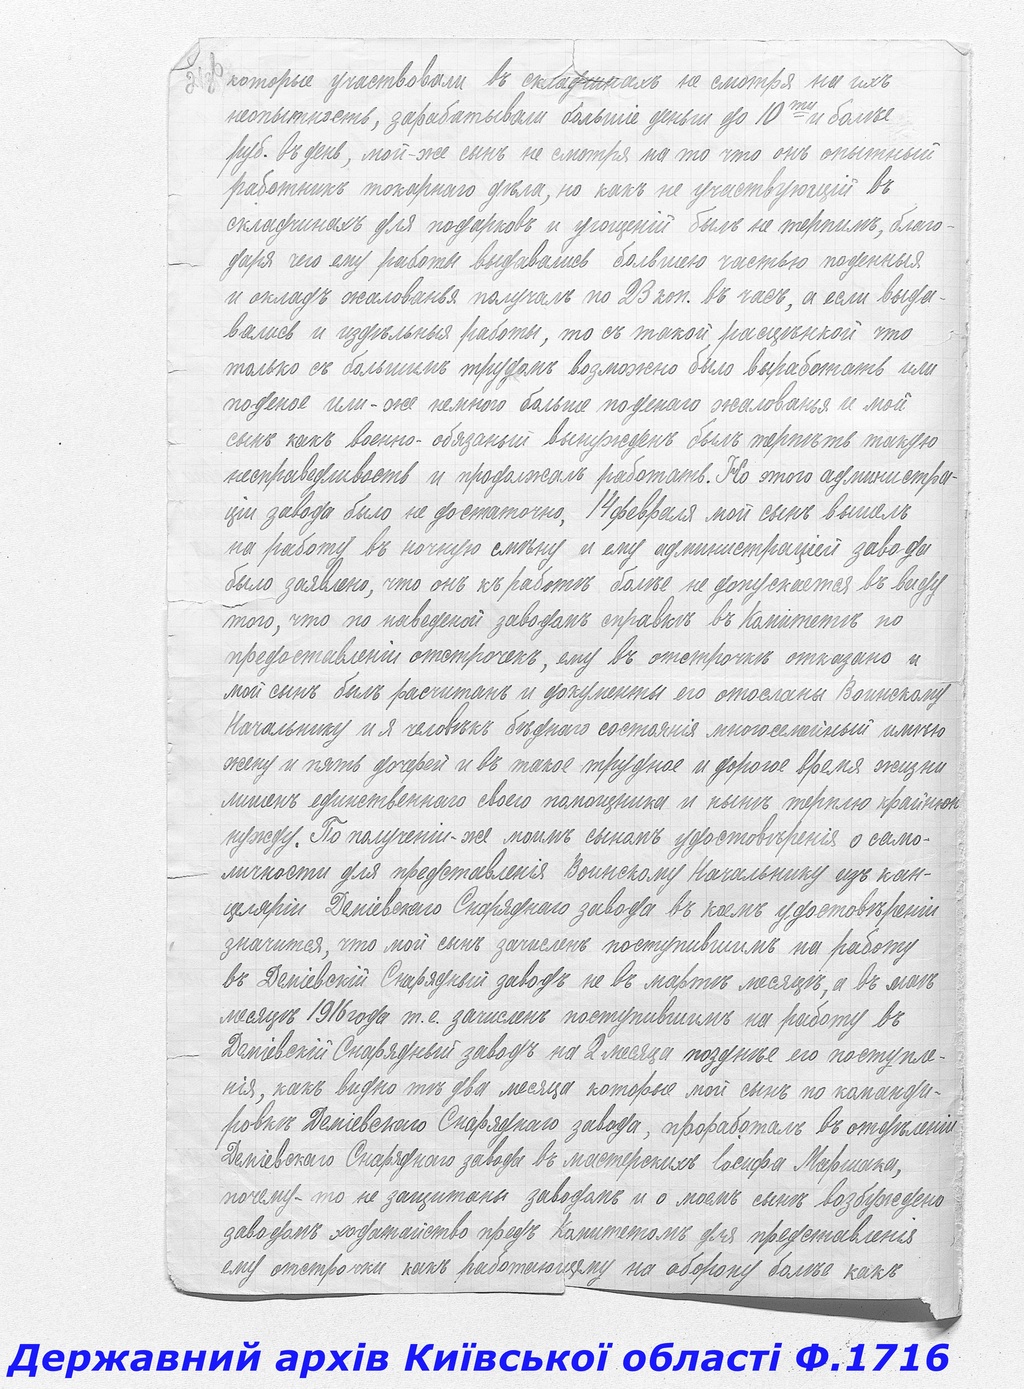 которые участвовали въ складчинахъ не смотря на ихъ
неопытность, зарабатывали большіе деньги до 10 ти и болѣе
руб. въ день, мой-же сынъ не смотря на то что онъ опытный
работникъ токарнаго дѣла, но какъ не участвующій въ
складчинахъ для подарковъ и угощеній былъ не терпимъ, благо-
даря чего ему работы выдавались большею частью поденныя
и окладъ жалованья получалъ по 23 коп. въ часъ, а если выда-
вались и издѣльныя работы, то съ такой расцѣнкой что
только съ большимъ трудомъ возможно было выработать или
поденое или-же немного больше поденаго жалованья и мой
сынъ какъ военно-обязаный вынужденъ былъ терпѣть такую
несправедливость и продолжалъ работать. Но этого администра-
ціи завода было не достаточно, 14 февраля мой сынъ вышелъ
на работу въ ночную смѣну и ему администраціей завода
было заявлено, что онъ къ работѣ болѣе не допускается въ виду
того, что по наведеной заводомъ справкѣ въ Комітетѣ по
предоставленіи отстрочекъ, ему въ отстрочкѣ отказано и
мой сынъ былъ расчитанъ и документы его отосланы Воинскому
Начальнику и я человѣкъ бѣднаго состоянія многосемейный имѣю
жену и пять дочерей и въ такое трудное и дорогое время жизни
лишенъ единственнаго своего помощника и нынѣ терплю крайнюю
нужду. По полученіи-же моимъ сыномъ удостовѣренія о само-
личности для представленія Воинскому Начальнику изъ кан-
целяріи Деміевскаго Снаряднаго завода въ коемъ удостовѣреніи
значится, что мой сынъ зачисленъ поступившимъ на работу
въ Деміевскій Снарядный заводъ не въ мартѣ месяцѣ, а въ маѣ
месяцѣ 1916 года т.е. зачисленъ поступившимъ на работу въ
Деміевскій Снарядный заводъ на 2 месяца позднѣе его поступле-
нія, какъ видно тѣ два месяца которые мой сынъ по команди-
ровкѣ Деміевскаго Снаряднаго завода, проработалъ въ отдѣленіи
Деміевскаго Снаряднаго завода въ мастерскихъ Іосифа Маршака,
почему-то не защитаны заводомъ и о моемъ сынѣ возбуждено
заводомъ ходатайство предъ Комитетомъ для представленія
ему отстрочки какъ работающему на оборону болѣе какъ
Державний архів Київської області Ф.1716